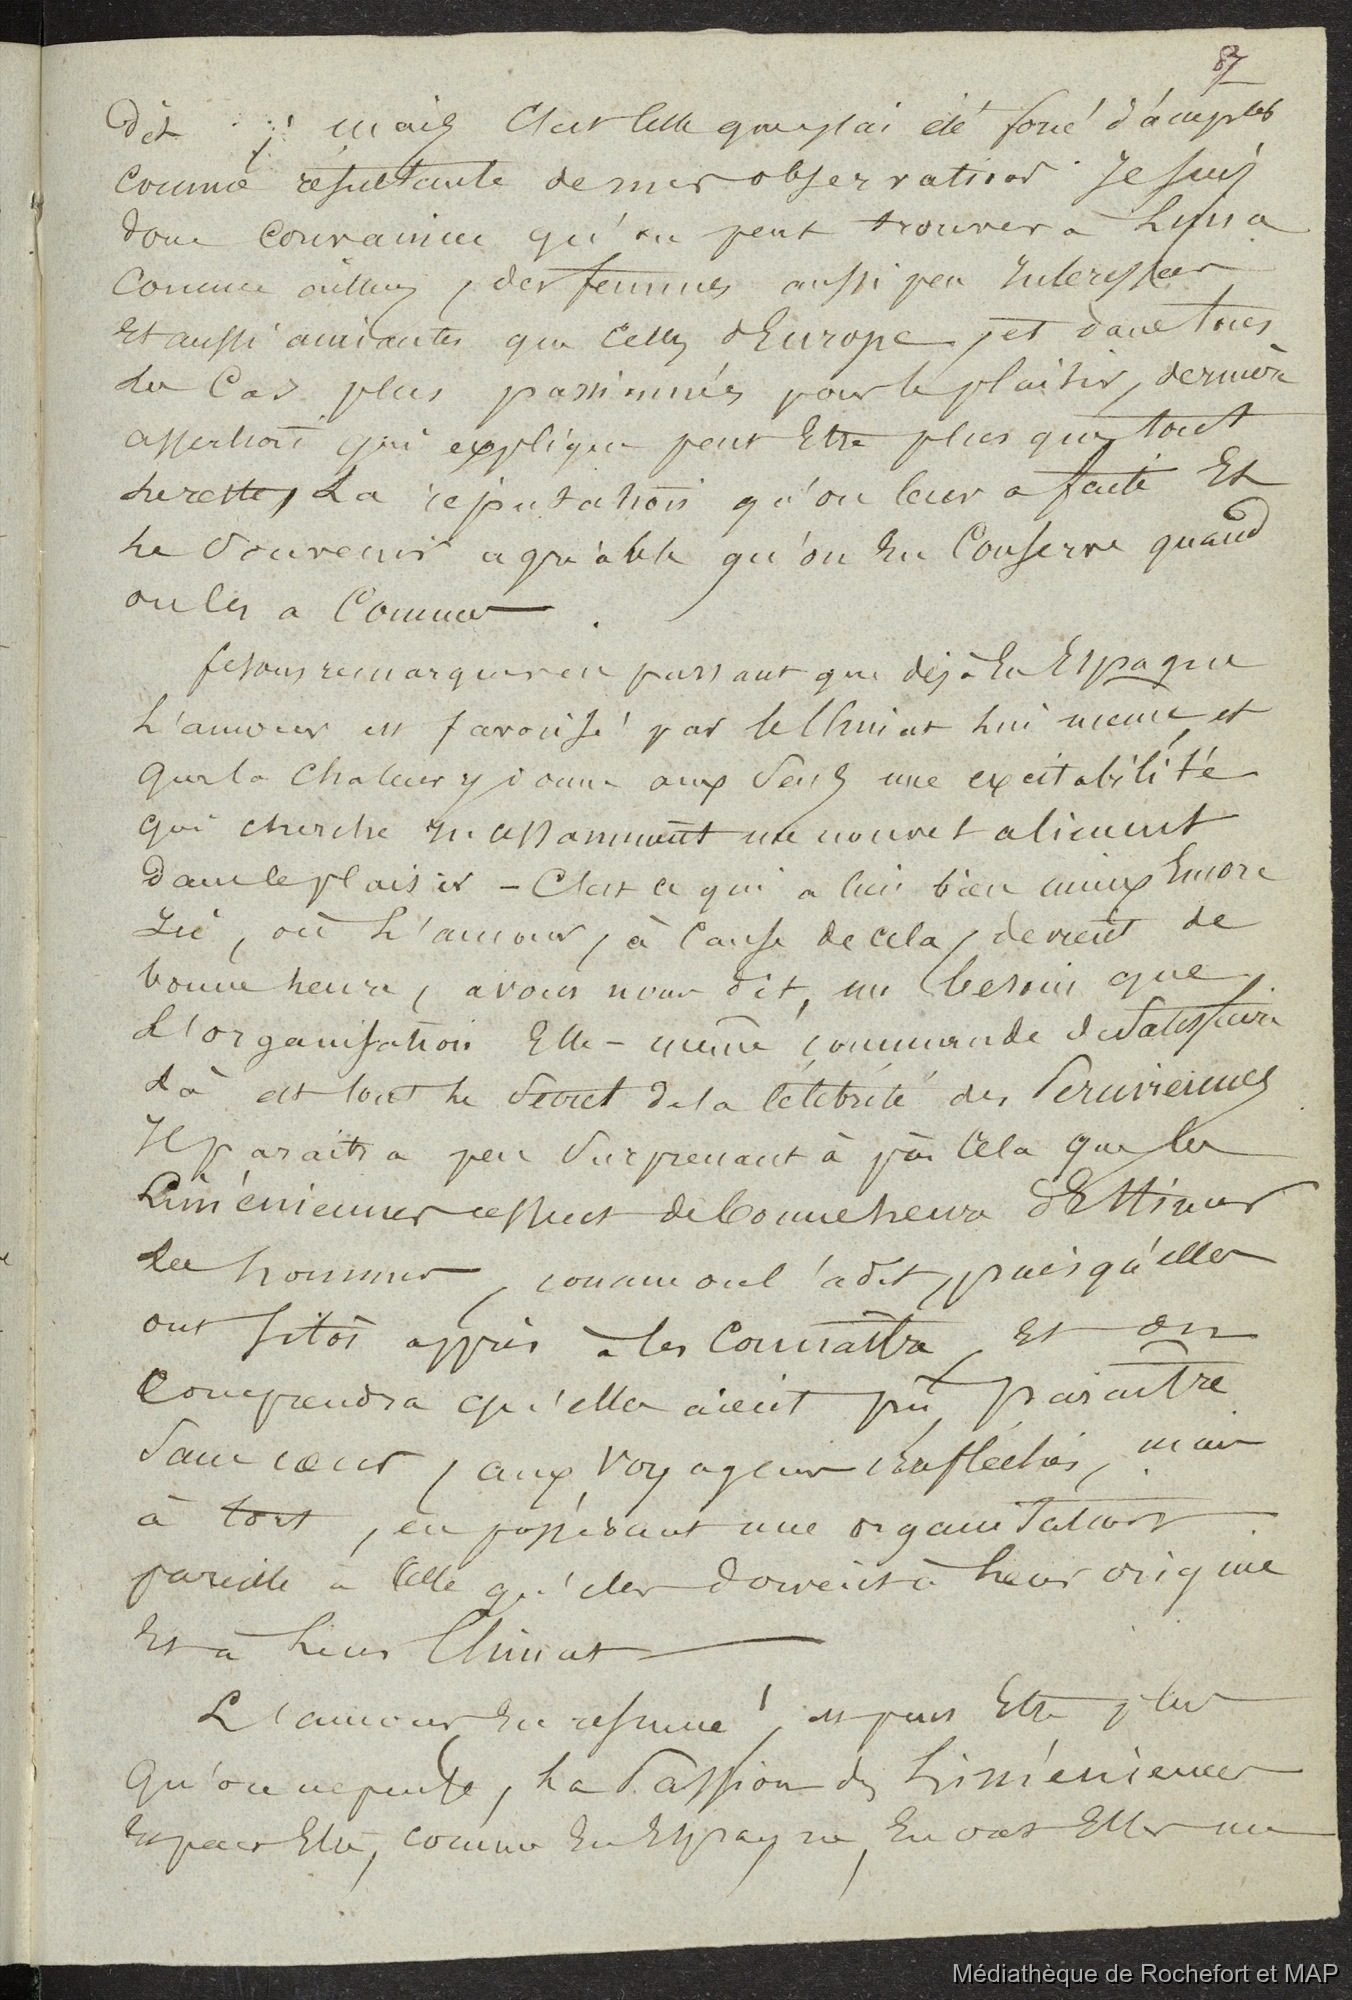 87
dit , mais C'est celle que j'ai été forcé d'accepter
comme résultante de mes observations Je suis
donc convaincu qu'on peut trouver a Lima
Comme ailleurs, des femmes aussi peu interessées
et aussi aimantes que celles d'Europe, et dans tous
les Cas plus passionnées pour le plaisir, dernière
assertion qui explique peut être plus que tout
le reste, La reputation qu'on leur a faite Et
le Souvenir agréable qu'on En Conserve quand
on les a Connues .
fesons remarquer en passant que déjà En Espagne
L'amour est favorisé par le Climat lui même, et
que la chaleur y donne aux Sens une excitabilité
qui cherche incessamment un nouvel aliment
Dans le plaisir - C'est ce qui a lieu bien mieux Encore
ici, où L'amour, à Cause de cela, devient de
bonne heure, avons nous dit, un besoin que
L'organisation Elle-même commande de Satisfaire
Là est tout le Secret de la Célébrité des Péruviennes
Il paraitra peu Surprenant à par Cela que les
Liméniennes cessent de bonne heure d'Estimer
Les hommes, comme on l'a dit, puisqu'elles
ont sitôt appris à les Connaître, et on
Comprendra qu'elles aient pû paraître
Sans coeur, aux Voyageurs irréfléchis, mais
à tort, en possédant une organisation
pareille à Celle qu'elles doivent à leur origine
Et à leur Climat
L'amour, En résumé, est peut Etre plus
Qu'on ne pense, La Passion des Liméniennes
Et peut Etre, comme En Espagne, En ont Elles un
Médiathèque de Rochefort et MAP